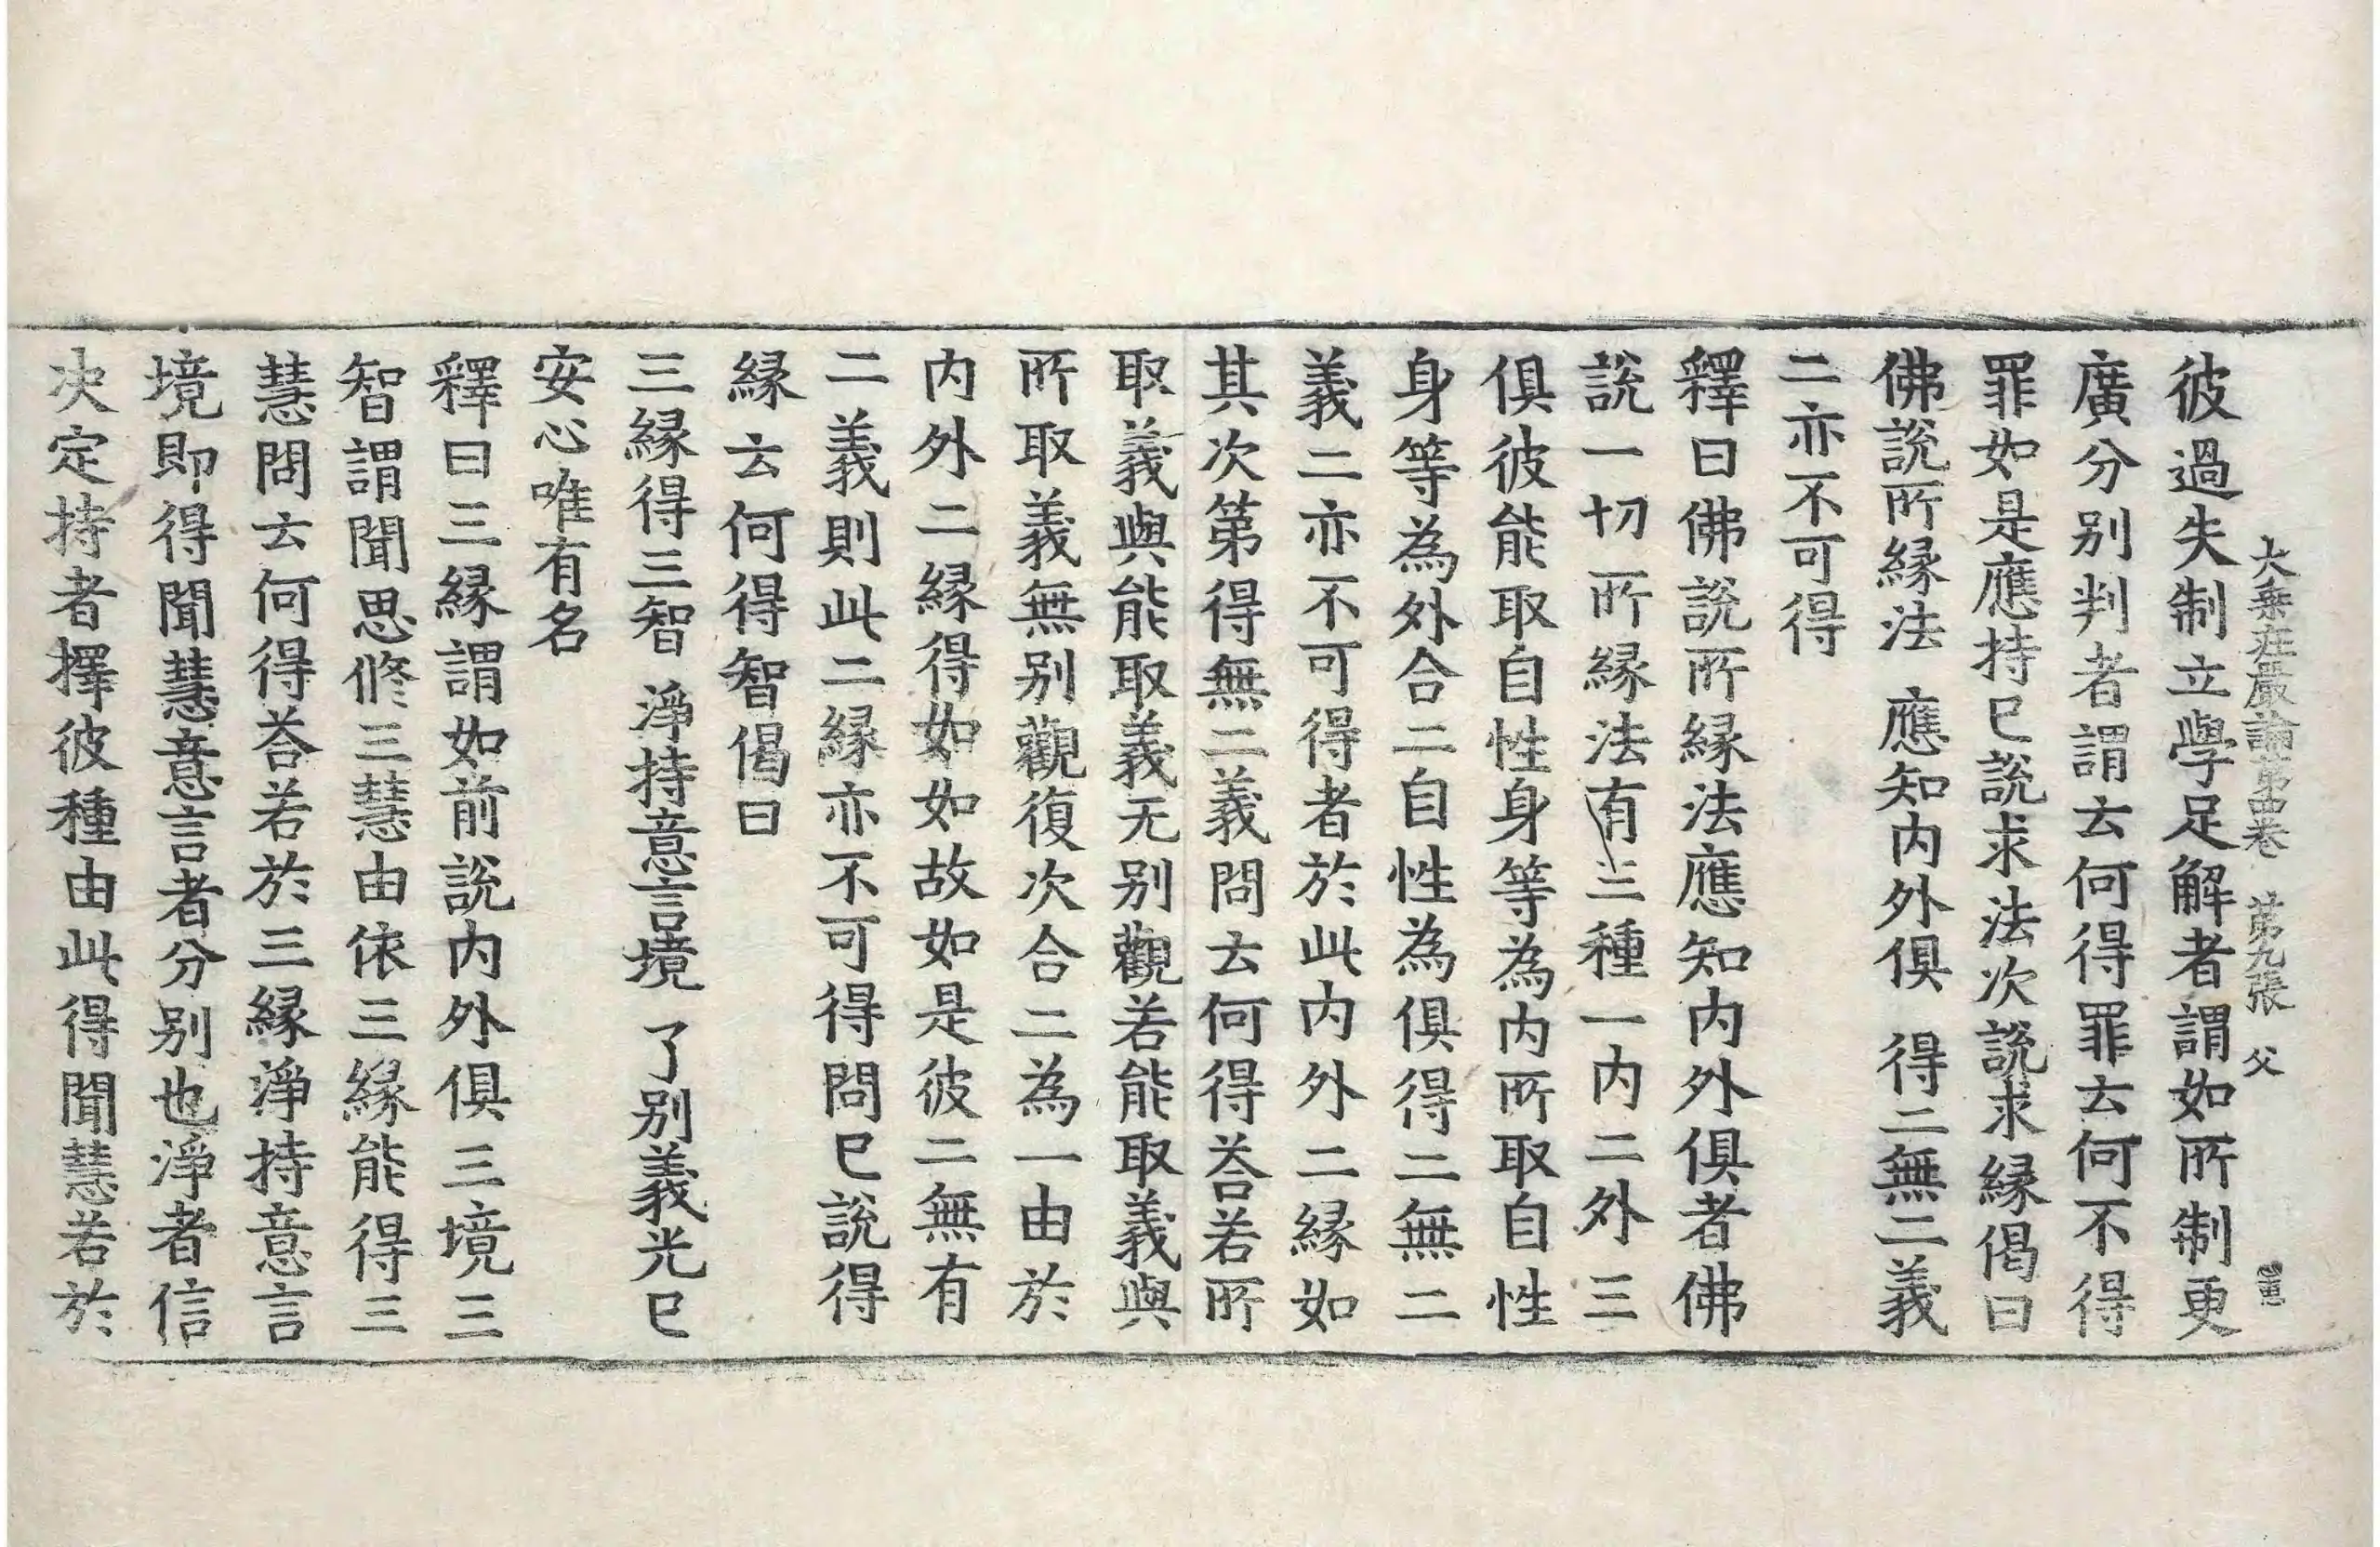 大乗荘嚴論第四卷　第九張　父
彼過失制立學足解者謂如所制更
廣分别判者謂云何得罪云何不得
罪如是應持已說求法次說求緣偈曰
佛說所緣法　應知内外俱　得二無二義
二亦不可得
釋曰佛說所緣法應知内外俱者佛
說一切所緣法有三種一内二外三
俱彼能取自性身等為内所取自性
身等為外合二自性為俱得二無二
義二亦不可得者於此内外二緣如
其次第得無二義問云何得荅若所
取義與能取義无别觀若能取義與
所取義無别觀復次合二為一由於
内外二緣得如如故如是彼二無有
二義則此二緣亦不可得問已說得
緣云何得智偈曰
三緣得三智　淨持意言境　了别義光已
安心唯有名
釋曰三緣謂如前說内外俱三境三
智謂聞思修三慧由依三緣能得三
慧問云何得荅若於三緣淨持意言
境即得聞慧意言者分别也淨者信
决定持者擇彼種由此得聞慧若於